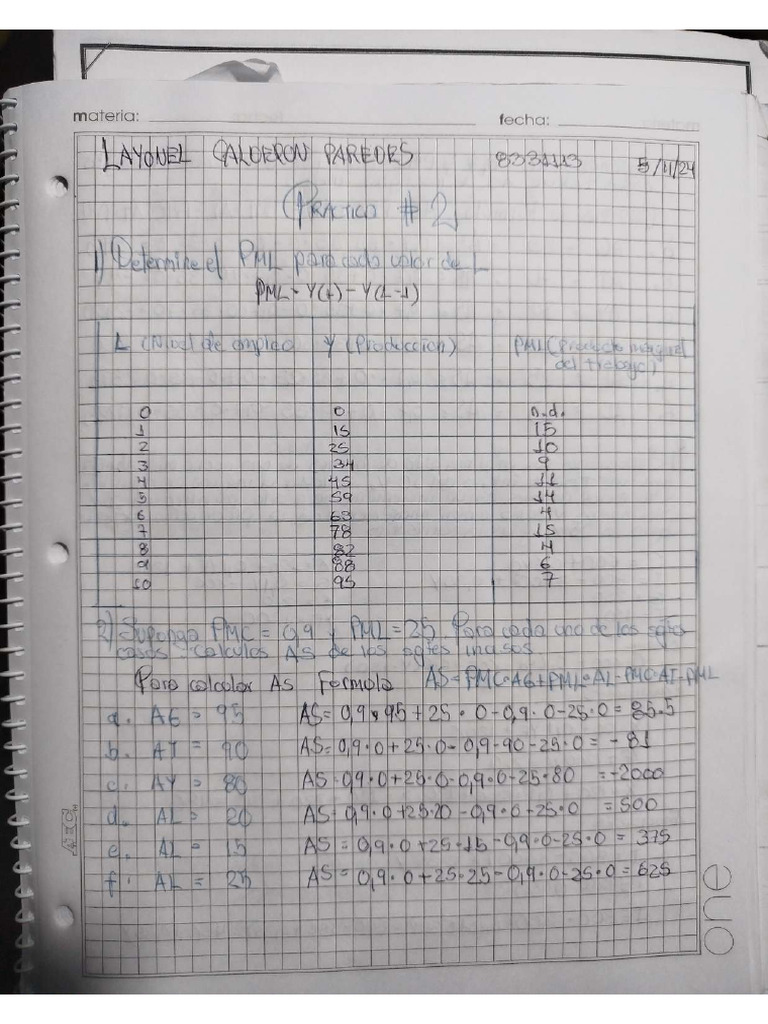 materia: fecha:
LAYONEL CALDERON PAREDES 8331113 5/11/24
PRACTICO # 2
1) Determine el PML para cada valor de L
PML = Y(t) - Y(L-1)
L (Nivel de empleo Y (Produccion) PML (Producto marginal
del trabajo)
0 0 n.d.
1 15 15
2 25 10
3 34 9
4 45 11
5 59 14
6 63 4
7 78 15
8 82 4
9 88 6
10 95 7
2) Suponga PMC = 0,9 y PML = 25 Para cada uno de los sgtes
casos calcule AS de los sgtes
Para calcular AS Formula AS = PMC·AG + PML·AL - PMC·AT - PML
a. AG = 95 AS = 0,9 · 95 + 25 · 0 - 0,9 · 0 - 25 · 0 = 85.5
b. AT = 90 AS = 0,9 · 0 + 25 · 0 - 0,9 - 90 - 25 · 0 = - 81
c. AY = 80 AS = 0,9 · 0 + 25 · 0 - 0,9 · 0 - 25 · 80 = -2000
d. AL = 20 AS = 0,9 · 0 + 25 · 20 - 0,9 · 0 + 25 · 0 = 500
e. AL = 15 AS = 0,9 · 0 + 25 · 15 - 0,9 · 0 - 25 · 0 = 375
f. AL = 25 AS = 0,9 · 0 + 25 · 25 - 0,9 · 0 - 25 · 0 = 625
one